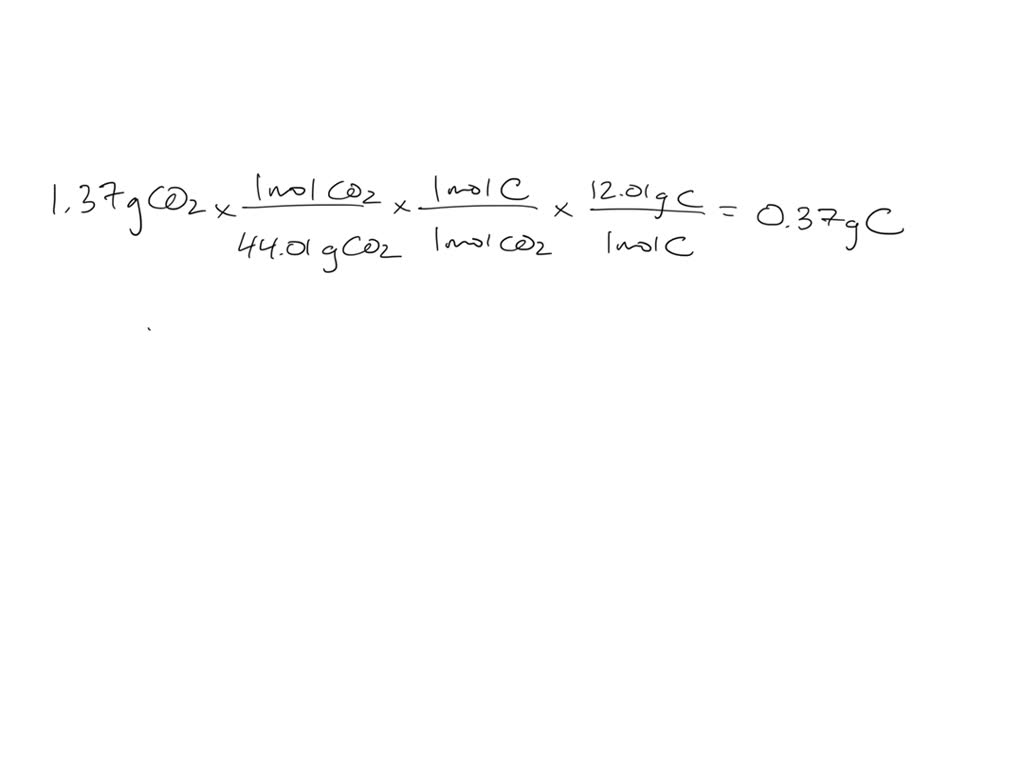 1.37gCO2 x 1mol CO2 / 44.01gCO2 x 1mol C / 1mol CO2 x 12.01g C / 1mol C = 0.37gC